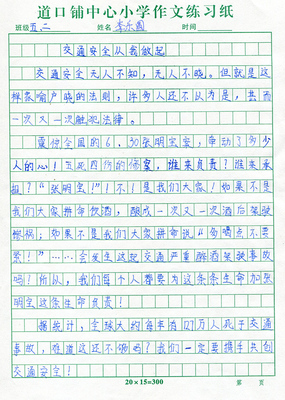 道口铺中心小学作文练习纸
班级五.二 姓名李东圆 时间
交通安全从我做起
交通安全无人不知，无人不晓。但就是这
样家喻户晓的法则，许多人还不认为是，甚而
一次又一次触犯法律。
震惊全国的6.30张明宝案，牵动了多少
人的心！五死四伤的惨案，谁来负责？谁来承
担？“张明宝！”！不！是我们大家！如果不是
我们大家拼命饮酒，酿成一次又一次酒后驾驶
惨祸；如果不是我们大家拼命说“勿喝点不要
紧！”……会发生这起交通严重醉酒驾驶事故
吗？所以，我们每个人都要为这条条生命加张
明宝这条生命负责！
据统计，全球大约每年有127万人死于交通
事故，难道这还不够吗？我们一定要携手共创
交通安全！
20×15=300
第 页